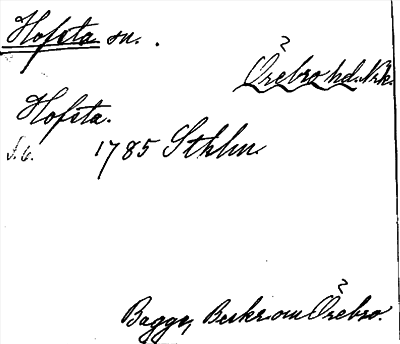 Hofsta sn.
Örebro hd. Nrk.
Hofsta.
S. 6. 1785 Sthlm
Bagge, Beskr. om Örebro.